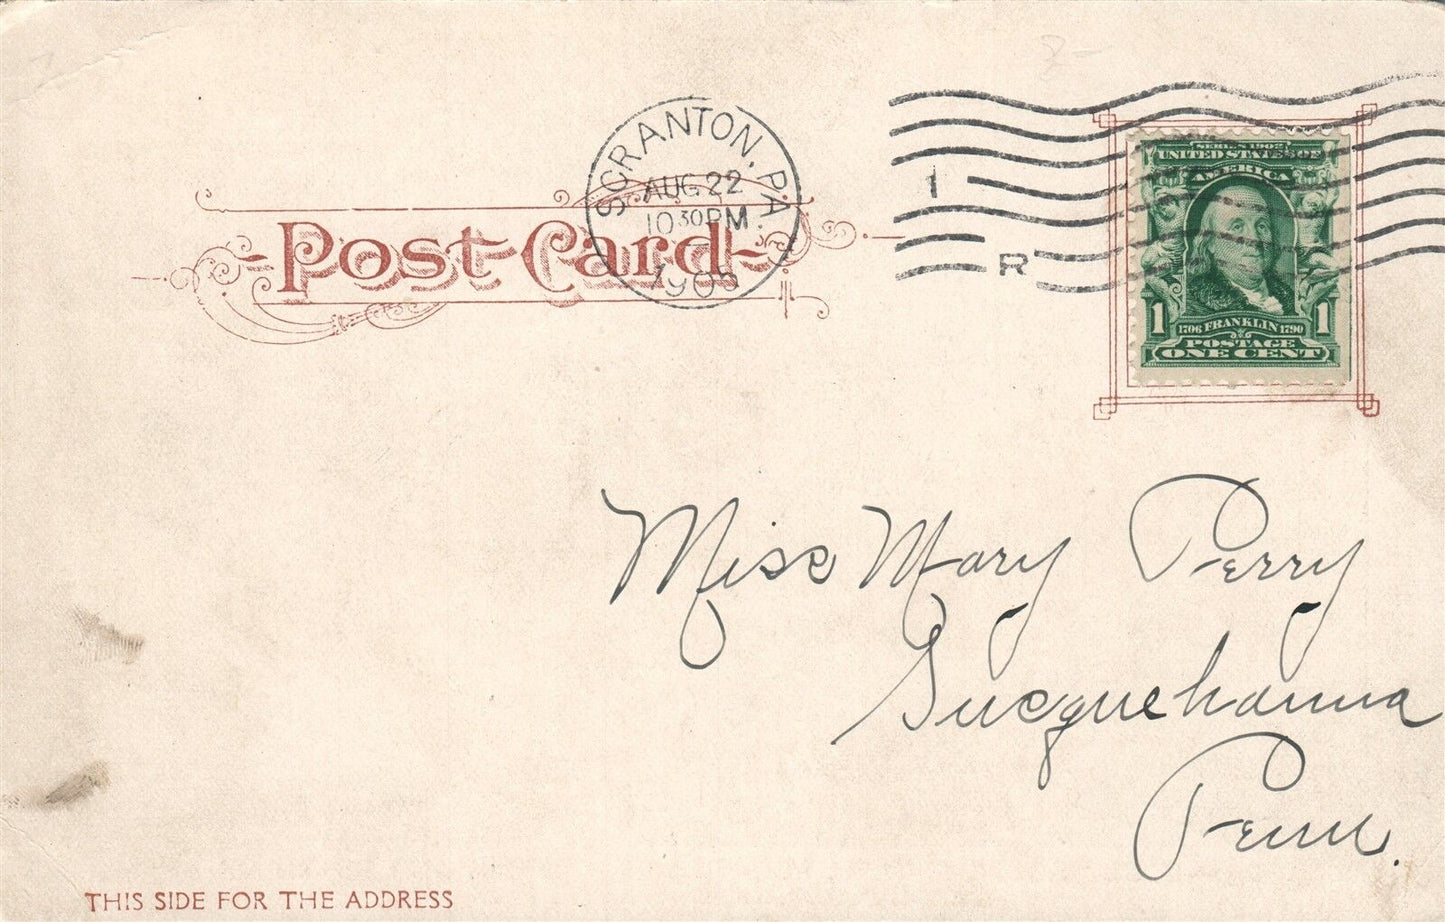 SCRANTON, PA.
AUG 22
10 30 PM
1905
1
R
SERIES 1902
UNITED STATES OF
AMERICA
1 1706 FRANKLIN 1790 1
POSTAGE
ONE CENT
Post Card
Miss Mary Perry
Susquehanna
Penn.
THIS SIDE FOR THE ADDRESS